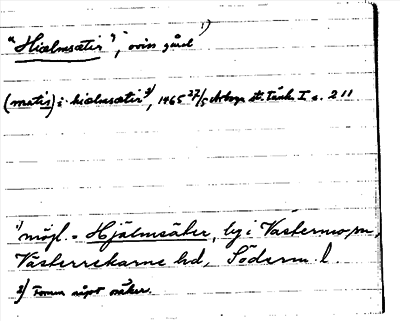 "Hiælmsætir", ovin gård 1)
(matis) i hiælmsætir 2), 1465 27/5 Arboga st. tänk. I s. 211
1) möjl. = Hjälmsäter, by i Västermo sn,
Västerrekarne hd, Söderm. l.
2) Formen något osäker.